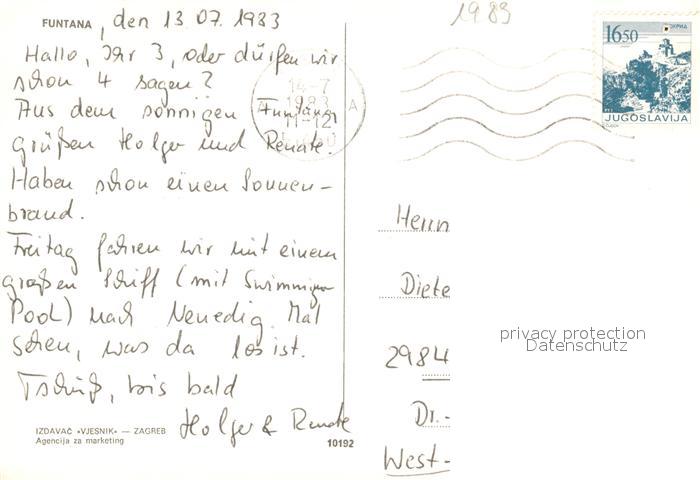 FUNTANA, den 13.07.1983
Hallo, Ihr 3, oder dürfen wir
schon 4 sagen?
Aus dem sonnigen Funtana
grüßen Holger und Renate.
Haben schon einen Sonnen-
brand.
Freitag fahren wir mit einem
großen Schiff (mit Swimming
Pool) nach Venedig. Mal
sehen, was da los ist.
Tschüß, bis bald
Holger & Renate
IZDAVAČ »VJESNIK« — ZAGREB
Agencija za marketing
10192
1983
16.50
ОХРИД
JUGOSLAVIJA
14-7
1983
11-12
A
Herrn
Diete
2984
Dr.-
West-
privacy protection
Datenschutz